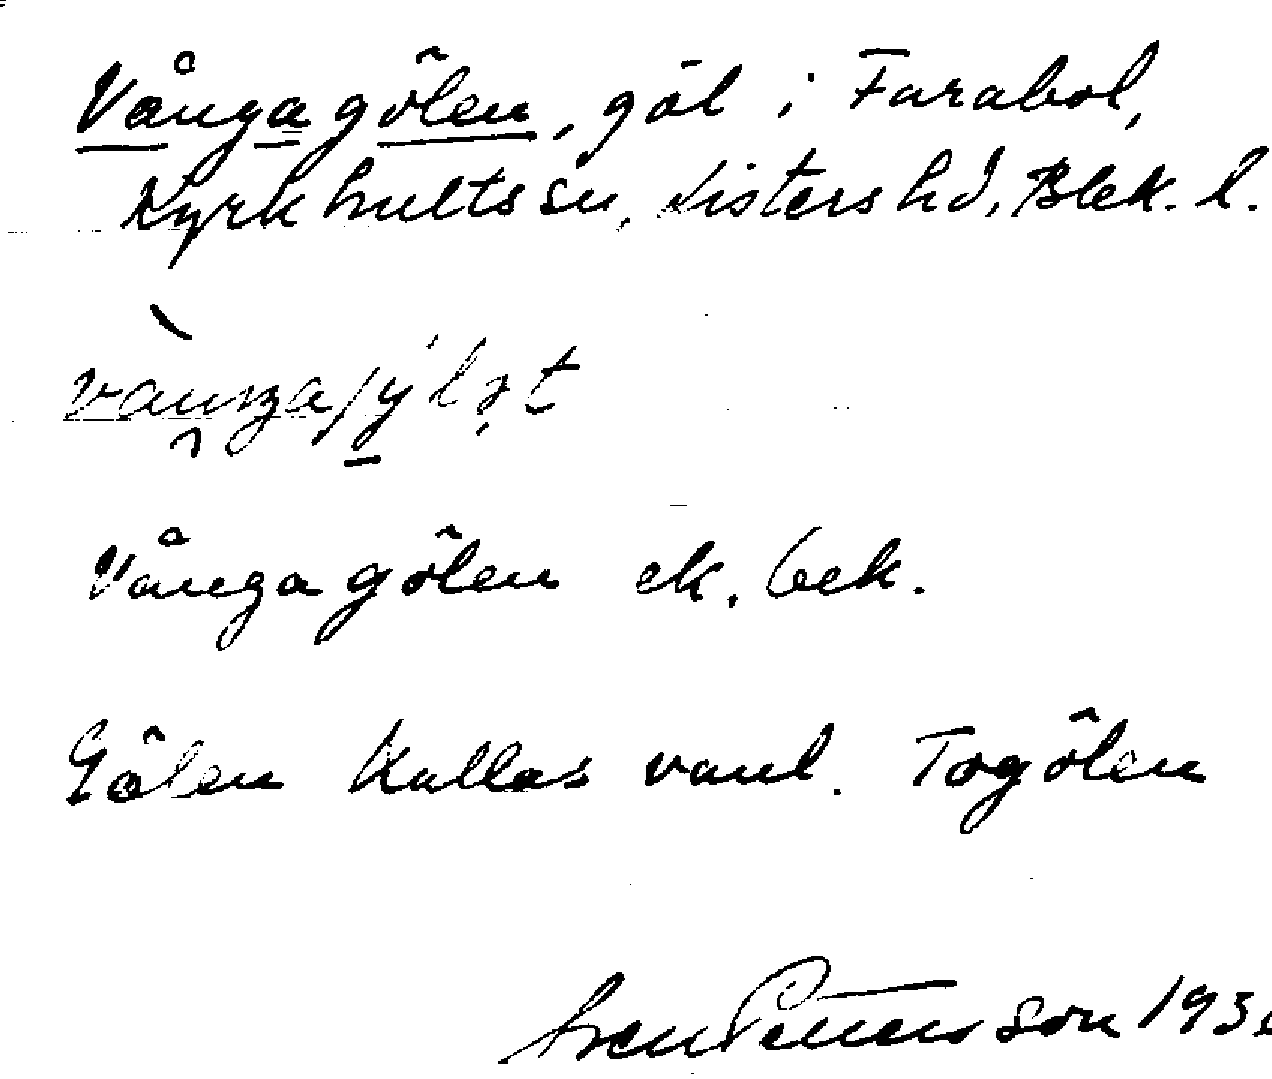 Vångagölen, göl i Farabol,
Kyrkhults sn, Listers hd, Blek. l.
Vångagölen ek. bek.
Gölen kallas vanl. Togölen
Sven Pettersson